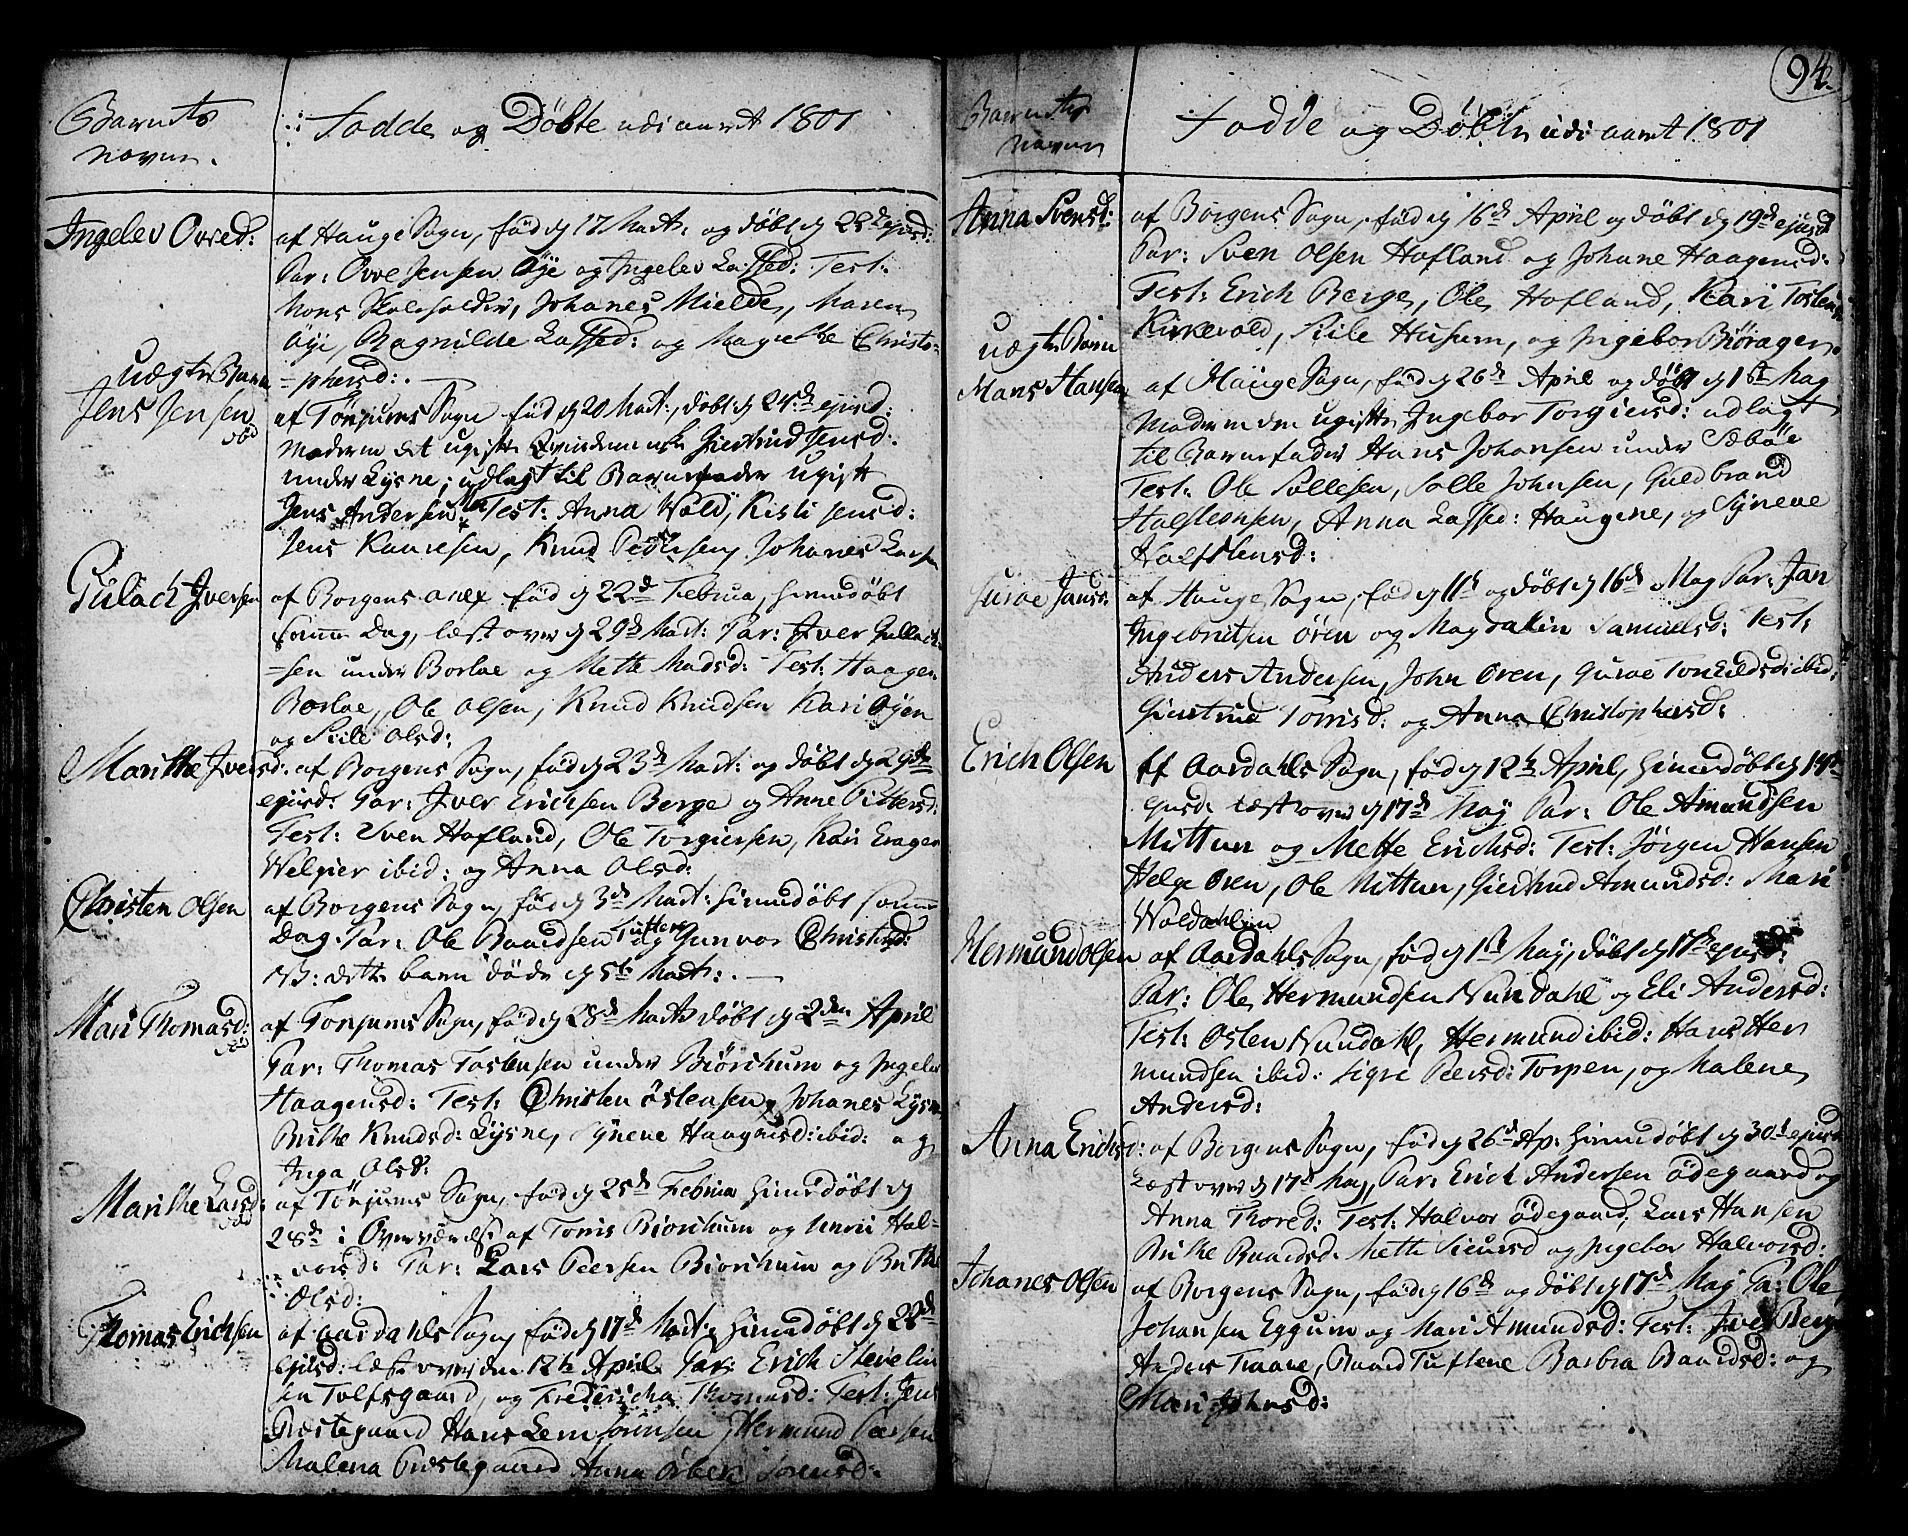 Barnets
navn.
Fødde og Döbte udi aaret 1801
Ingelev Ovred:
af Hauge Sogn, föd d 17 Mart: og döbt d 22de ejusd:
Par: Ovve Jensen Öye og Ingelev Lassed: Test:
Mons Skoleholder, Johanes Mielde, Maren
Öye, Ragnilde Lassed: og Magrethe Christo-
=phersd:. —
Uægte Barn
Jens Jensen
af Tonjums Sogn föd d 20 Mart:, döbt d 24de ejusd:
Moderen det ugifte Qvindemenske Giertrud Jensd:
under Lysne; udlagt til Barnefader ugift
Jens Andersen Test: Anna Wold, Kisti Jensd:
Jens Knudsen, Knud Pedersen, Johanes Larsen
Gulach Iversen
af Borgens anex föd d 22de Februa, hiemedöbt
samme Dag, læst over d 29de Mart: Par: Iver Gullach-
=sen under Borloe og Mette Madsd: Test: Haagen
Borloe, Ole Olsen, Knud Knudsen Kari Öyen
og Siile Olsd:
Marithe Iversd:
af Borgens Sogn, föd d 23de Mart: og döbt d 29de
ejusd: Par: Iver Erichsen Berge og Anne Pittersd:
Test: Sven Hofland, Ole Torgiersen, Kari Erager
Welgier ibid: og Anna Olsd:
Christen Olsen
af Borgens Sogn, föd d 3de Mart: hiemedöbt samme
Dag. Par: Ole Baardsen Tuften og Gunvor Christensd:
NB: dette barn döde d 5te Mart:. —
Mari Thomasd:
af Tonjums Sogn, föd d 28de Mart: döbt d 2den April
Par: Thomas Tostensen under Biörchum og Ingelev
Haagensd: Test: Christen Östensen, Johanes Lysne
Brithe Knudsd: Lysne, Synneve Haagensd: ibid: og
Inga Olsd:
Marithe Larsd:
af Tönjums Sogn, föd d 25de Februa hiemdöbt d
28de i Overværelse af Tomis Biörchum og Unni Hal-
vorsd: Par: Lars Peersen Biörchum og Brithe
Olsd:
Thomas Erichsen
af Aardahls Sogn, föd d 17de Mart: hiemdöbt d 22de
ejusd: læst over den 12te April Par: Erich Stevelin
sen Tolfsgaard, og Frederiche Thomasd: Test: Jens
Præstegaard Hans Lem Sörensen Hermund Peersen
Malena Præstegaard Anna Örben Sorensd:
94.
Barnets
Navn
Fødde og Döbte udi aaret 1801
Anna Svensd:
af Borgens Sogn, föd d 16de April og döbt d 19de ejusd
Par: Sven Olsen Hofland og Johane Haagensd:
Test: Erich Berge, Ole Hofland, Kari Tostensd
Kirkevold, Siile Husum, og Ingebor Biöragen.
Uægte Barn
Mons Hansen
af Hauge Sogn, föd d 26de April og döbt d 1ste May
Moderen den ugifte Ingebor Torgiersd: udlagt
til Barnefader Hans Johansen under Sæböe
Test: Ole Sollesen, Solle Johnsen, Guldbrand
Halsteensen, Anna Lassed: Haugene, og Synneve
Halstensd:
Guroe Jansd:
af Hauge Sogn, föd d 11te og döbt d 16de May Par: Jan
Ingebrigtsen Ören og Magdalen Samuelsd: Test:
Anders Andersen, John Oren, Guroe Torkildsd: ibid,
Giertrud Tomisd: og Anna Christophersd:
Erich Olsen
af Aardahls Sogn, föd d 12te April, hiemdöbt d 14de
ejusd: læst over d 17de May Par: Ole Amundsen
Mittun og Mette Erichsd: Test: Jörgen Hansen
Helge Oren, Ole Mittun, Giertrud Amundsd: Mari
Woldahlen
Hermund Olsen
af Aardahls Sogn, föd d 1ste May, döbt d 17de ejusd:
Par: Ole Hermundsen Nundahl og Eli Andersd:
Test: Osten Nundahl, Hermund ibid: Hans Her
mundsen ibid: Sigri Peersd: Torpen, og Malene
Andersd:
Anna Erichsd:
af Borgens Sogn, föd d 26de Ap: hiemdöbt d 30te ejusd
Læst over d 17de May, Par: Erich Andersen Ödegaard og
Anna Thored: Test: Halvor Ödegaard, Lars Hansen
Brithe Baardsd. Mette Siursd og Ingebor Halvorsd:
Johanes Olsen
af Borgens Sogn, föd d 16de og döbt d 17de May Pa: Ole
Johansen Eggum og Mari Amundsd: Test: Iver Berge
Anders Traae, Baard Tuftene Barbra Baardsd: og
Mari Johnsd: